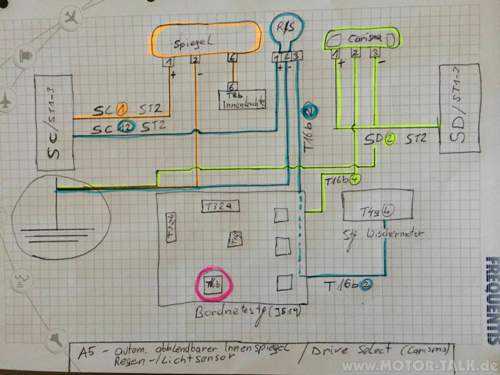 Spiegel
R/S
Carisma
1 2 6
1 2 3
1 2 3
+ -
+ -
+ -
6
T6b
Innenleucht
SC/ST1-3
SC 1 ST2
SC 12 ST2
SD/ST1-3
SD 2 ST2
T16b 2
T16b 4
T32a
T4si 4
Stg Wischermotor
T16b 2
T16b
Bordnetzstg (J519)
A5 - autom. abblendbarer Innenspiegel / Drive Select (Carisma)
Regen-/Lichtsensor
FREQUENTIS
www.MOTOR-TALK.de